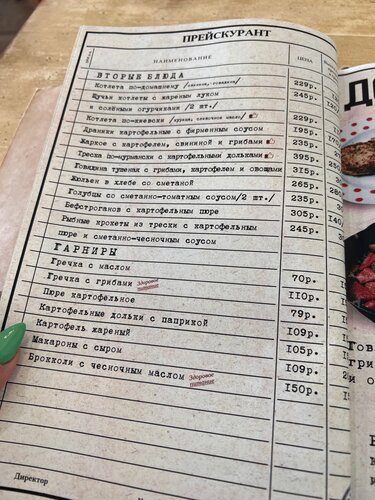 ПРЕЙСКУРАНТ
НАИМЕНОВАНИЕ ЦЕНА
ВТОРЫЕ БЛЮДА
Котлета по-домашнему /свинина, говядина/ 229р.
Дучья котлеты с жареным луком 245р.
и солёными огурчиками /2 шт./
Котлета по-киевски /курица, сливочное масло/ 229р.
Драники картофельные с фирменным соусом 195р.
Жаркое с картофелем, свининой и грибами 235р.
Треска по-мурмански с картофельными дольками 395р.
Говядина тушеная с грибами, картофелем и овощами 315р.
Жюльен в хлебе со сметаной 265р.
Голубцы со сметанно-томатным соусом/2 шт./ 235р.
Бефстроганов с картофельным пюре 305р.
Рыбные крокеты из трески с картофельным 245р.
пюре и сметанно-чесночным соусом
ГАРНИРЫ
Гречка с маслом 70р.
Гречка с грибами Здоровое питание 110р.
Пюре картофельное 79р.
Картофельные дольки с паприкой 109р.
Картофель жареный 105р.
Макароны с сыром 109р.
Брокколи с чесночным маслом Здоровое питание 150р.
Директор